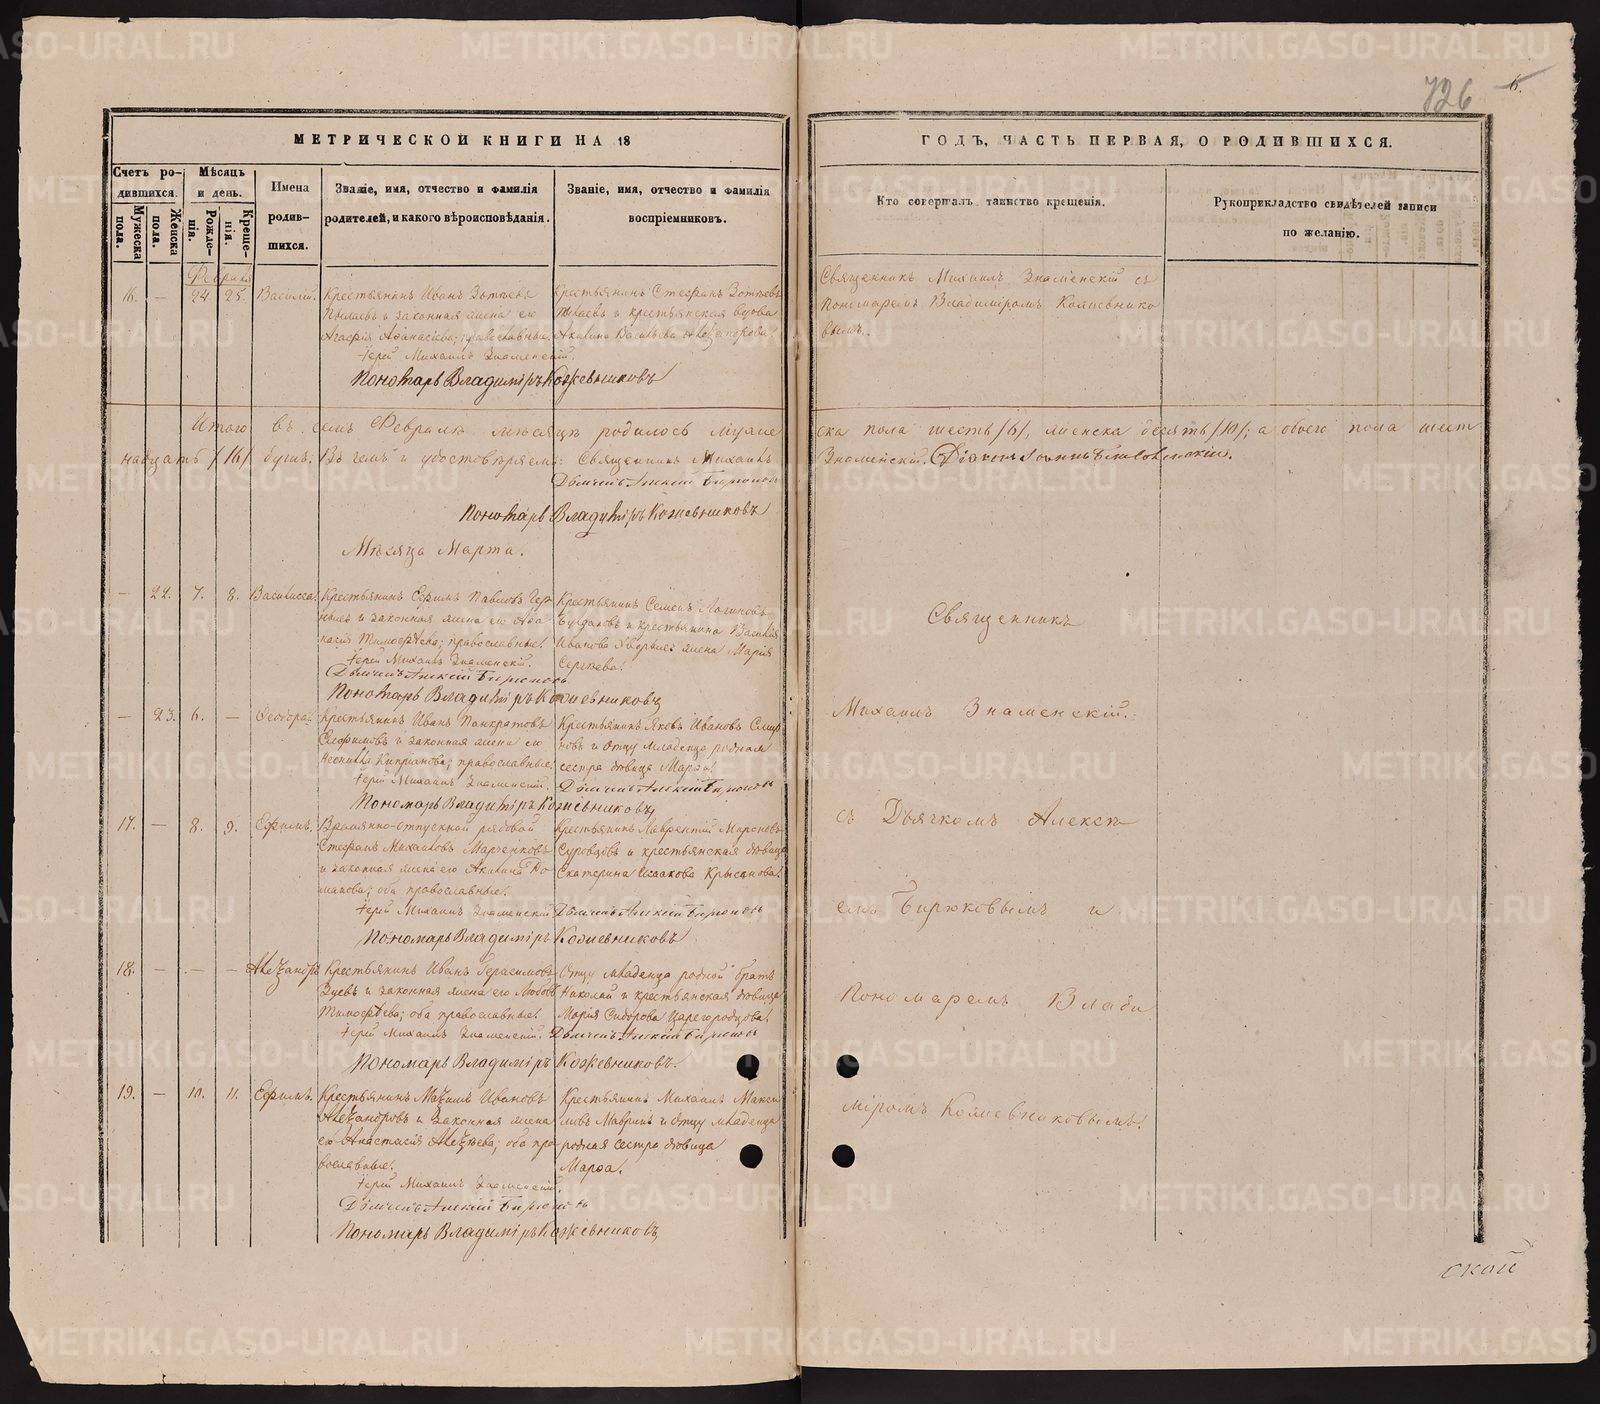 726
МЕТРИЧЕСКОЙ КНИГИ НА 18
ГОДЪ, ЧАСТЬ ПЕРВАЯ, О РОДИВШИХСЯ.
Счетъ ро-
дившихся.
Мужеска
пола.
Женска
пола.
Мѣсяцъ
и день.
Рожде-
нія.
Креще-
нія.
Имена
родив-
шихся.
Званіе, имя, отчество и фамилія
родителей, и какого вѣроисповѣданія.
Званіе, имя, отчество и фамилія
воспріемниковъ.
Кто совершалъ таинство крещенія.
Рукоприкладство свидѣтелей записи
по желанію.
Февраля
16. — 24 25. Василій.
Крестьянинъ Иванъ Зотѣевъ
и законная жена его
Агафія Аѳанасіева; православные.
Іерей Михаилъ Знаменскій.
Пономарь Владиміръ Кожевниковъ
Крестьянинъ Стефанъ Зотѣевъ
и крестьянская вдова
Акилина Васильева Александрова.
Священникъ Михаилъ Знаменскій съ
Пономаремъ Владиміромъ Кожевнико
вымъ.
Итого въ семъ Февралѣ мѣсяцѣ родилось муже
ска пола шесть /6/, женска десять /10/; а обоего пола шест
надцать /16/ душъ. Въ чемъ и удостовѣряемъ: Священникъ Михаилъ
Знаменскій.
Пономарь Владиміръ Кожевниковъ
Мѣсяца Марта.
— 22. 7. 8. Василисса.
Крестьянинъ Ефимъ Павловъ
и законная жена его
Тимофѣева; православные.
Іерей Михаилъ Знаменскій.
Дьячекъ Алексій Бирюковъ
Пономарь Владиміръ Кожевниковъ
Крестьянинъ Семенъ Логиновъ
и крестьянина Василія
Иванова жена Марія
Сергѣева.
Священникъ
— 23. 6. — Ѳеодора.
Крестьянинъ Иванъ Панкратовъ
Елфимовъ и законная жена его
Неонила Кипріанова; православные.
Іерей Михаилъ Знаменскій.
Пономарь Владиміръ Кожевниковъ
Крестьянинъ Яковъ Ивановъ Смир
новъ и Отцу младенца родная
сестра дѣвица Марѳа.
Дьячекъ Алексій Бирюковъ
Михаилъ Знаменскій.
17. — 8. 9. Ефимъ.
Временно-отпускной рядовой
Стефанъ Михайловъ Марченковъ
и законная жена его Акилина Ро
манова; оба православные.
Іерей Михаилъ Знаменскій
Пономарь Владиміръ Кожевниковъ
Крестьянинъ Лаврентій Мироновъ
Суровцовъ и крестьянская дѣвица
Екатерина Исаакова Крысанова.
Дьячекъ Алексій Бирюковъ
съ Дьячкомъ Алексѣ
емъ Бирюковымъ и
18. — — — Александръ.
Крестьянинъ Иванъ Герасимовъ
Зуевъ и законная жена его Любовь
Тимофѣева; оба православные.
Іерей Михаилъ Знаменскій.
Пономарь Владиміръ Кожевниковъ.
Отцу младенца родной братъ
Николай и крестьянская дѣвица
Марія Сидорова Царегородцова.
Дьячекъ Алексій Бирюковъ
Пономаремъ Влади
19. — 10. 11. Ефимъ.
Крестьянинъ Максимъ Ивановъ
Александровъ и законная жена
его Анастасія Алексѣева; оба пра
вославные.
Іерей Михаилъ Знаменскій.
Дьячекъ Алексій Бирюковъ
Пономарь Владиміръ Кожевниковъ
Крестьянинъ Михаилъ Макси
мовъ Лавринъ и Отцу младенца
родная сестра дѣвица
Марѳа.
міромъ Кожевниковымъ.
ской
METRIKI.GASO-URAL.RU